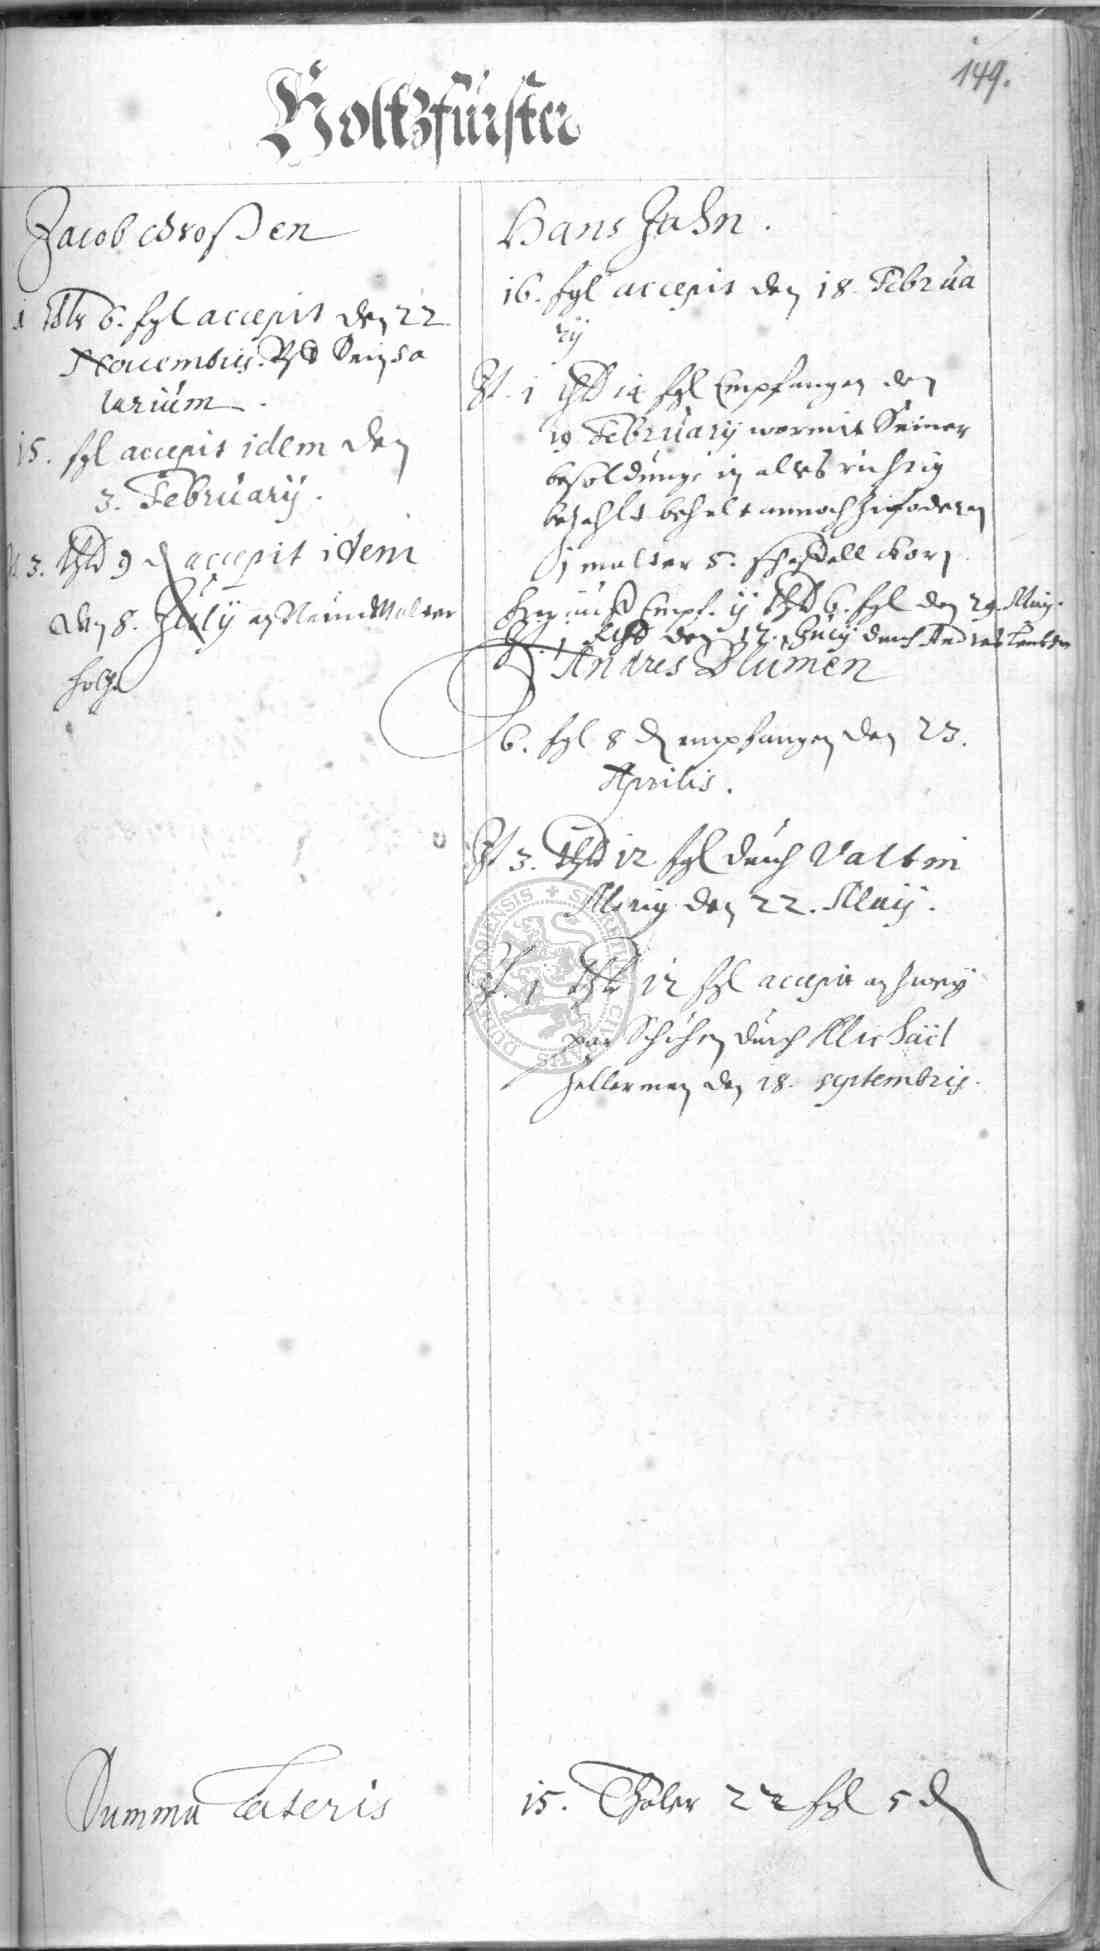 149.
Holtzfürster
Jacob Großen
1 Thlr 6. sgl accepit den 22
Novembris. Vf Sein sa
larium.
15. sgl accepit idem den
3. February.
It. 3. thlr 9 ₰ accepit idem
den 8. July an Neun Malter
holtz
Hans Jahn.
16. sgl accepit den 18. Februa
rij
It. 1 thlr 14 sgl Empfangen den
19 February wormit Seiner
besoldunge in alles richtig
bezahlt behelt annoch zu fodern
1 malter 5. scheffell korn
hierauf Empf. ij thlr 6. sgl den 29. May.
It. 1 Rthlr den 12. July durch Andres
Andres Blumen
6. sgl 8 ₰ empfangen den 23.
Aprilis.
It 3. thlr 12 sgl durch Valtin
den 22. May.
It. 1 thlr 12 sgl accepit an zwey
par Schuhen durch Michael
Hellerman den 18. septembris.
SIGILLUM CIVITATIS
Summa Lateris
15. Thaler 22 sgl 5 ₰